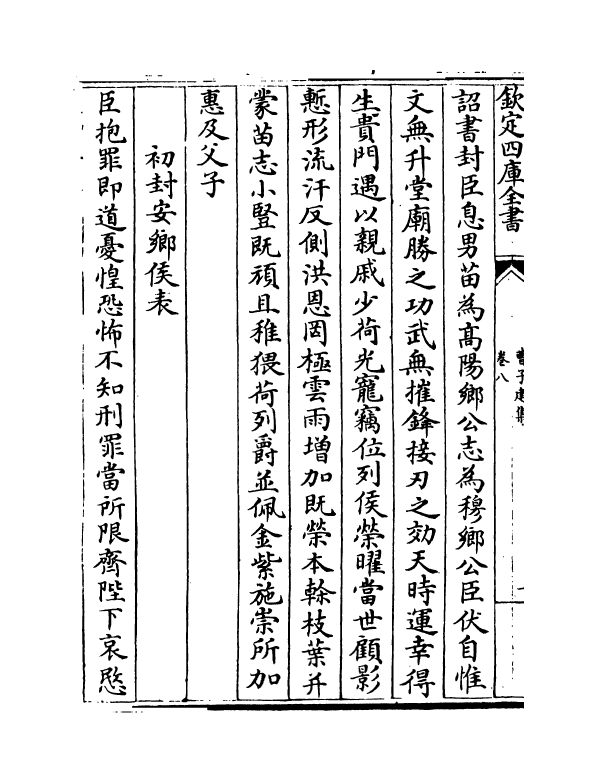 欽定四庫全書
曹子建集
卷八
詔書封臣息男苗為髙陽鄉公志為穆鄉公臣伏自惟
文無升堂廟勝之功武無摧鋒接刃之効天時運幸得
生貴門遇以親戚少荷光寵竊位列侯榮曜當世顧影
慙形流汗反側洪恩罔極雲雨增加既榮本榦枝葉并
蒙苗志小豎既頑且稚猥荷列爵並佩金紫施崇所加
惠及父子
初封安鄉侯表
臣抱罪即道憂惶恐怖不知刑罪當所限齊陛下哀愍